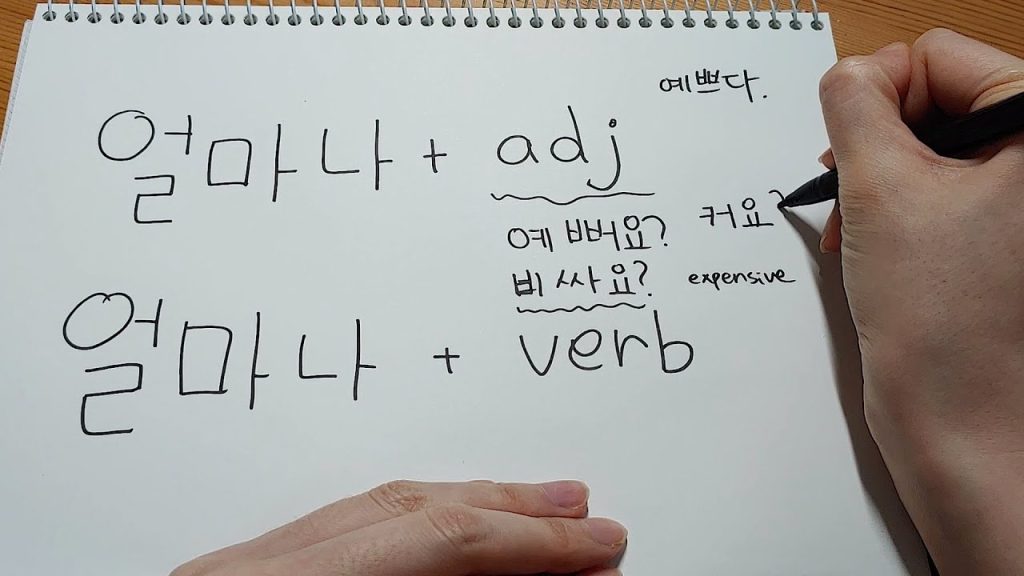 예쁘다.
얼마나 + adj
예뻐요? 커요?
비싸요? expensive
얼마나 + verb